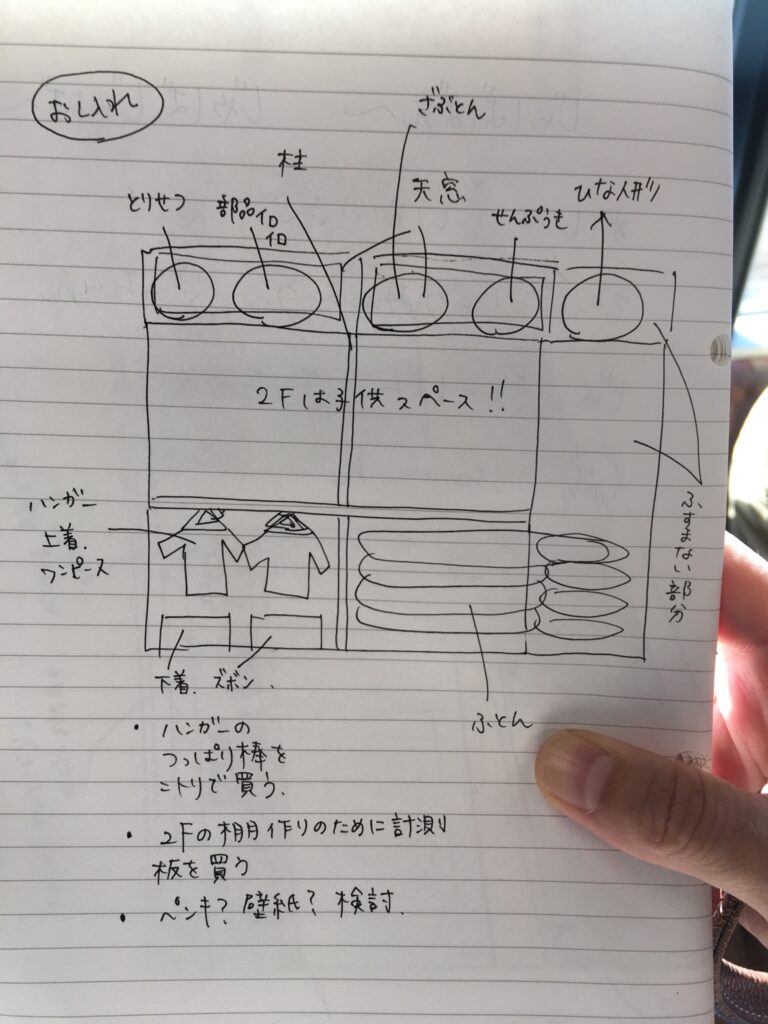 おし入れ
ざぶとん
柱
天窓
ひな人形
とりせつ
部品イロ
イロ
せんぷうき
2Fは子供スペース!!
ハンガー
上着.
ワンピース
ふすまない部分
下着. ズボン.
ふとん
・ハンガーの
つっぱり棒を
ニトリで買う.
・2Fの棚作りのために計測
板を買う
・ペンキ? 壁紙? 検討.